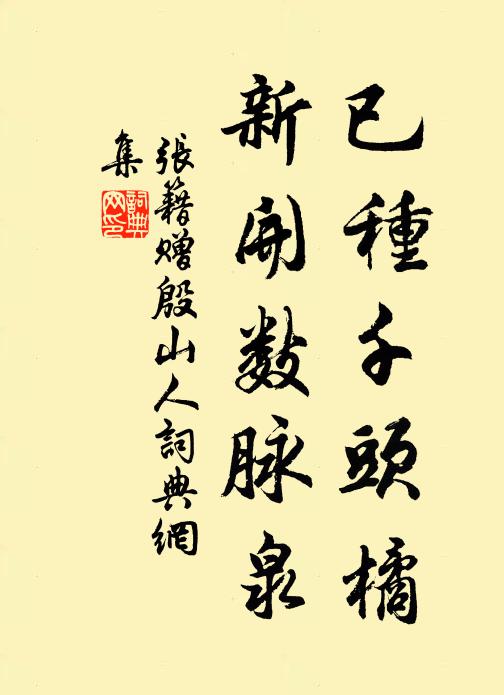 已種千頭橘
新開數脉泉
張籍贈殷山人詞典網
集
詞典網印